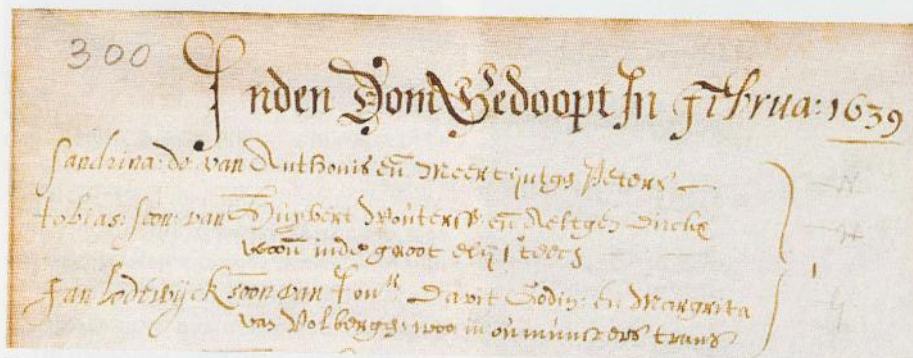 300
Inden Dom Gedoopt In Februa: 1639
Sandrina: do: van Anthonis en Meertijntgh Peters
tobias: soon: van Huijbert Wouters en Aeltgen
woon inde groot
Jan Lodewijck soon van Jour Davit Godin: en Margrita
van Volbergh: woo in oumunsters trans